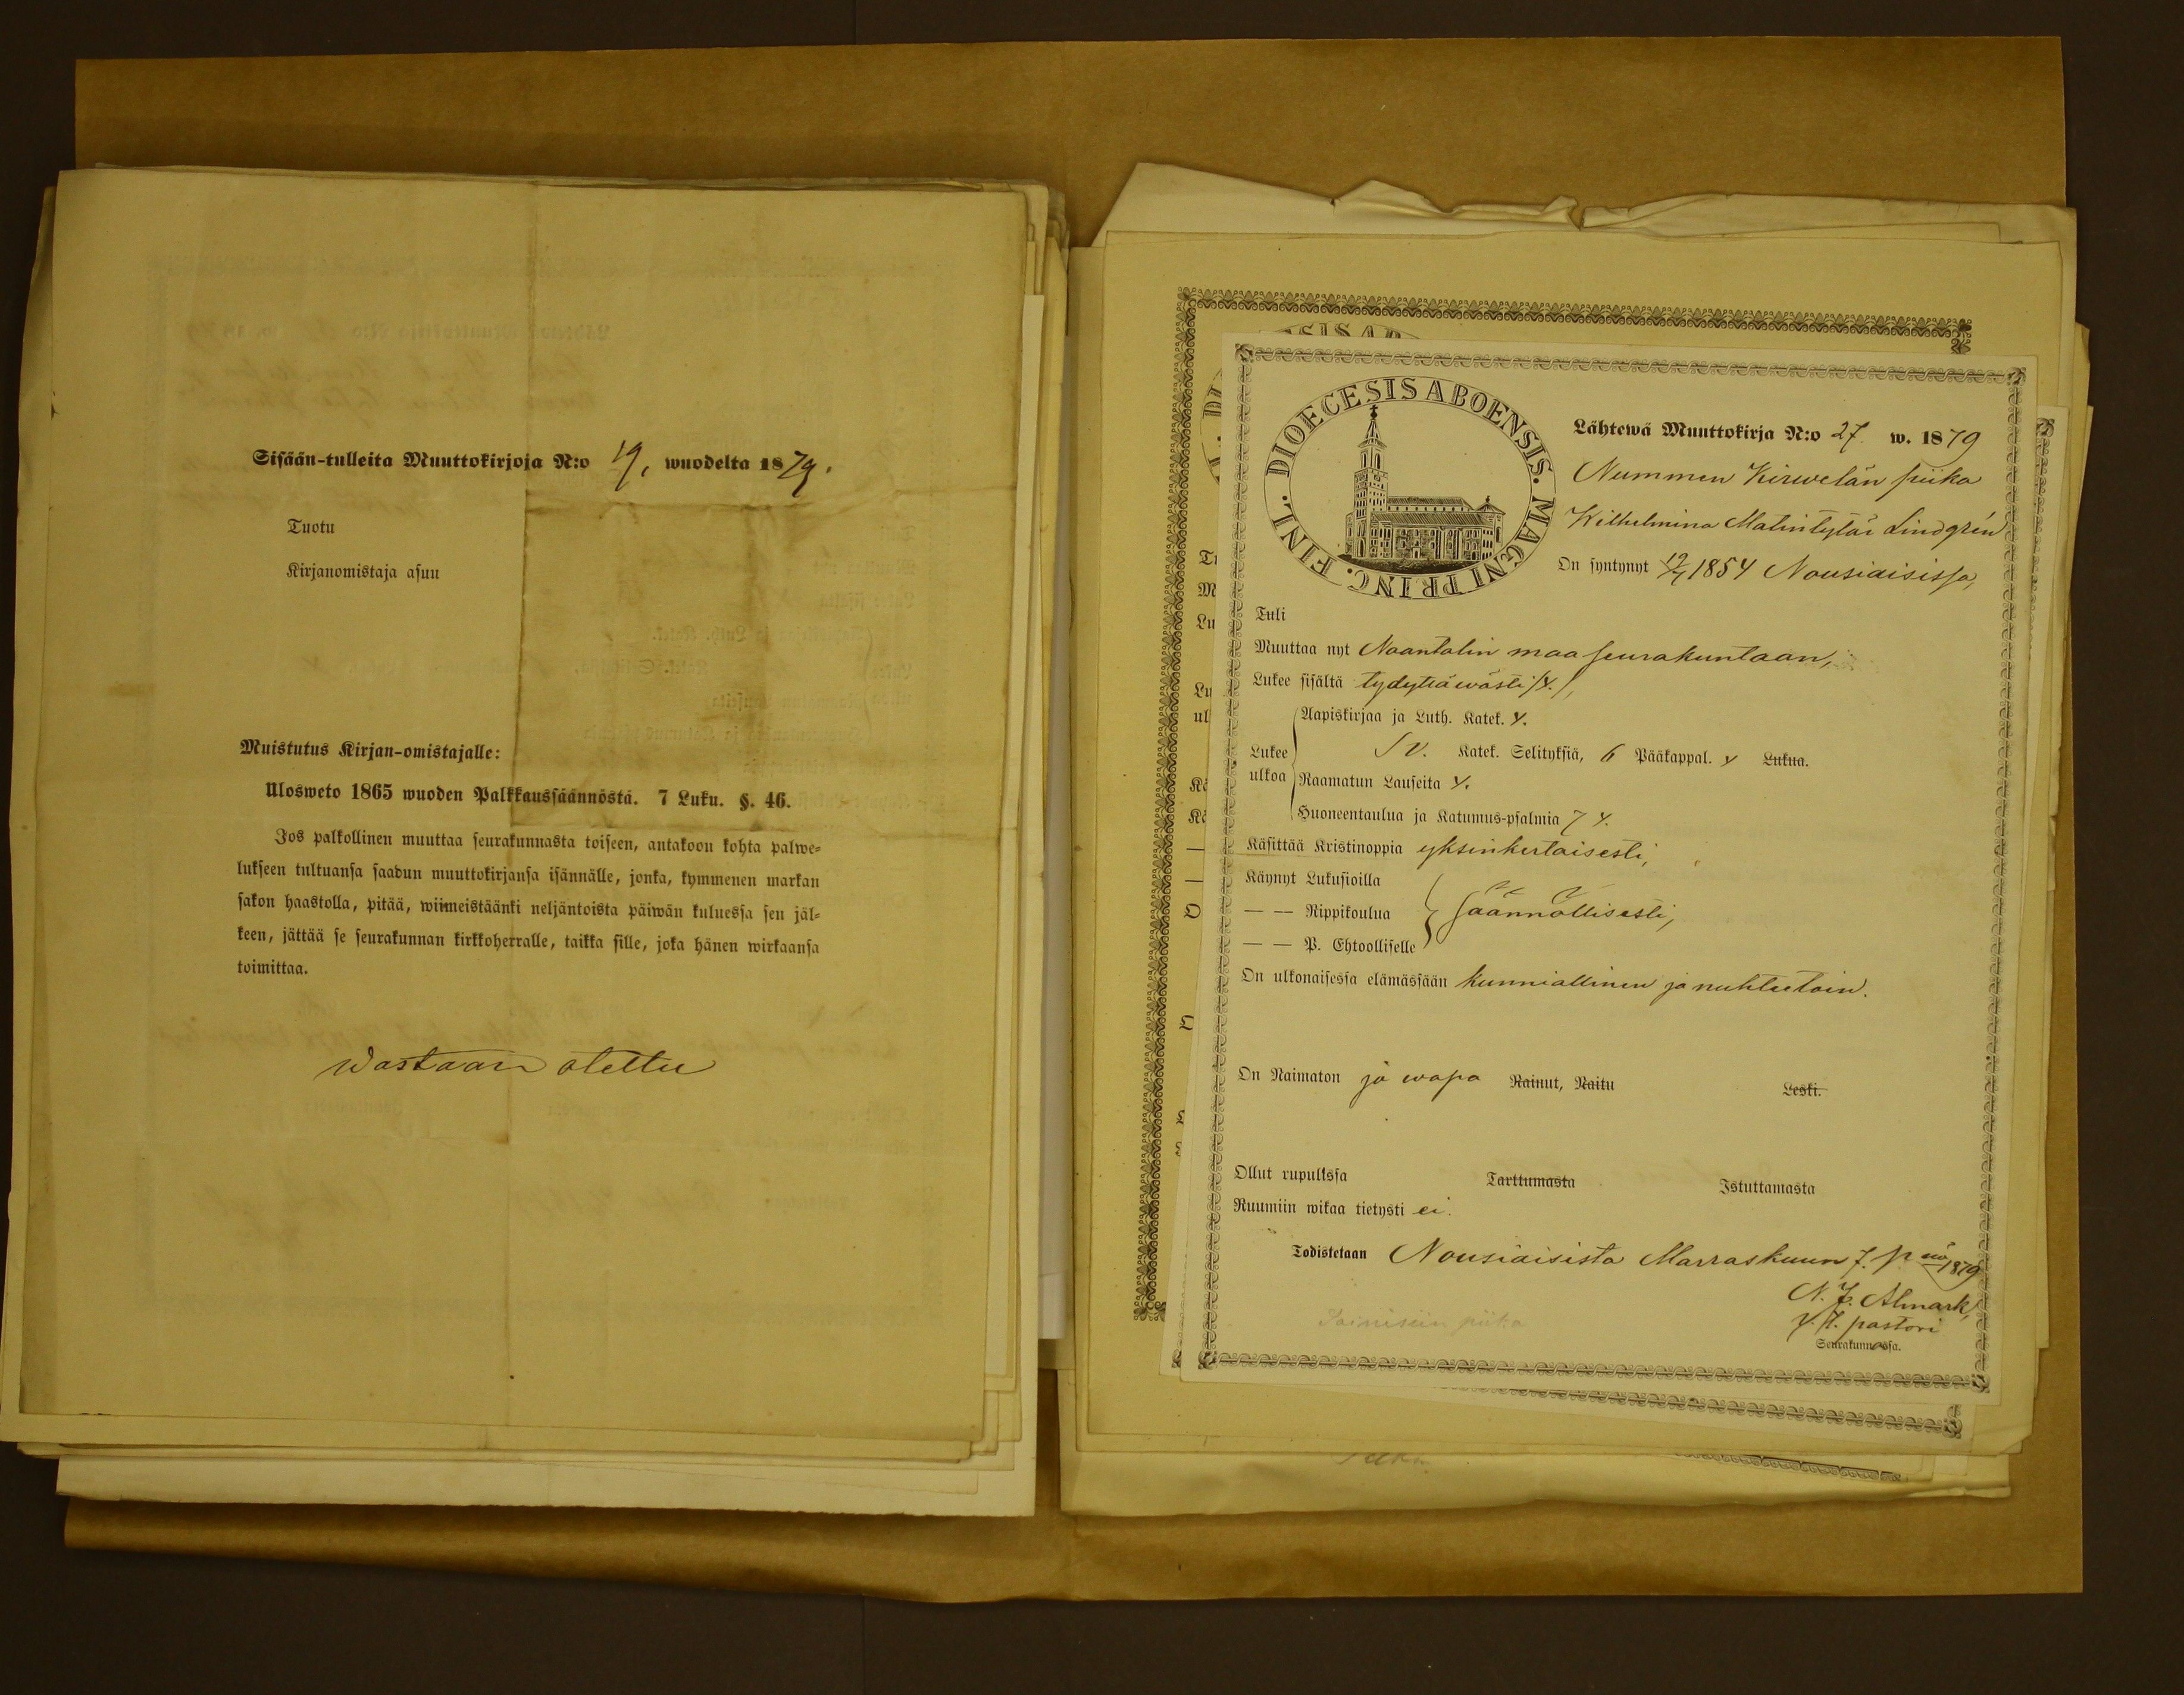 Sisään-tulleita Muuttokirjoja N:o 19, wuodelta 1879.
Tuotu
Kirjanomistaja asuu
Muistutus Kirjan-omistajalle:
Ulosweto 1865 wuoden Palkkaussäännöstä. 7 Luku. §. 46.
Jos palkollinen muuttaa seurakunnasta toiseen, antakoon kohta palwe-
lukseen tultuansa saadun muuttokirjansa isännälle, jonka, kymmenen markan
sakon haastolla, pitää, wiimeistäänki neljäntoista päiwän kuluessa sen jäl-
keen, jättää se seurakunnan kirkkoherralle, taikka sille, joka hänen wirkaansa
toimittaa.
Wastaan otettu
DIOECESIS ABOENSIS. MAGNI PRINC. FINL.
Lähtewä Muuttokirja N:o 27. w. 1879
Nummen Kirwelän piika
Wilhelmina Matintytär Lindgrén
On syntynyt 1854 Nousiaisissa,
Tuli
Muuttaa nyt Naantalin maaseurakuntaan,
Lukee sisältä tydyttäwästi /4./,
Aapiskirjaa ja Luth. Katek. 4.
Lukee Sv. Katek. Selityksiä, 6 Pääkappal. 4 Lukua.
ulkoa Raamatun Lauseita 4.
Huoneentaulua ja Katumus-psalmia 7 4.
Käsittää Kristinoppia yksinkertaisesti,
Käynyt Lukusioilla
— — Rippikoulua säännöllisesti,
— — P. Ehtoolliselle
On ulkonaisessa elämässään kunniallinen ja nuhteetoin.
On Naimaton ja wapa Nainut, Naitu Leski.
Ollut rupulissa Tarttumasta Istuttamasta
Ruumiin wikaa tietysti ei.
Todistetaan Nousiaisista Marraskuun 7. p nä 1879
N. J. Almark,
v. t. pastori
Seurakunnassa.
piika